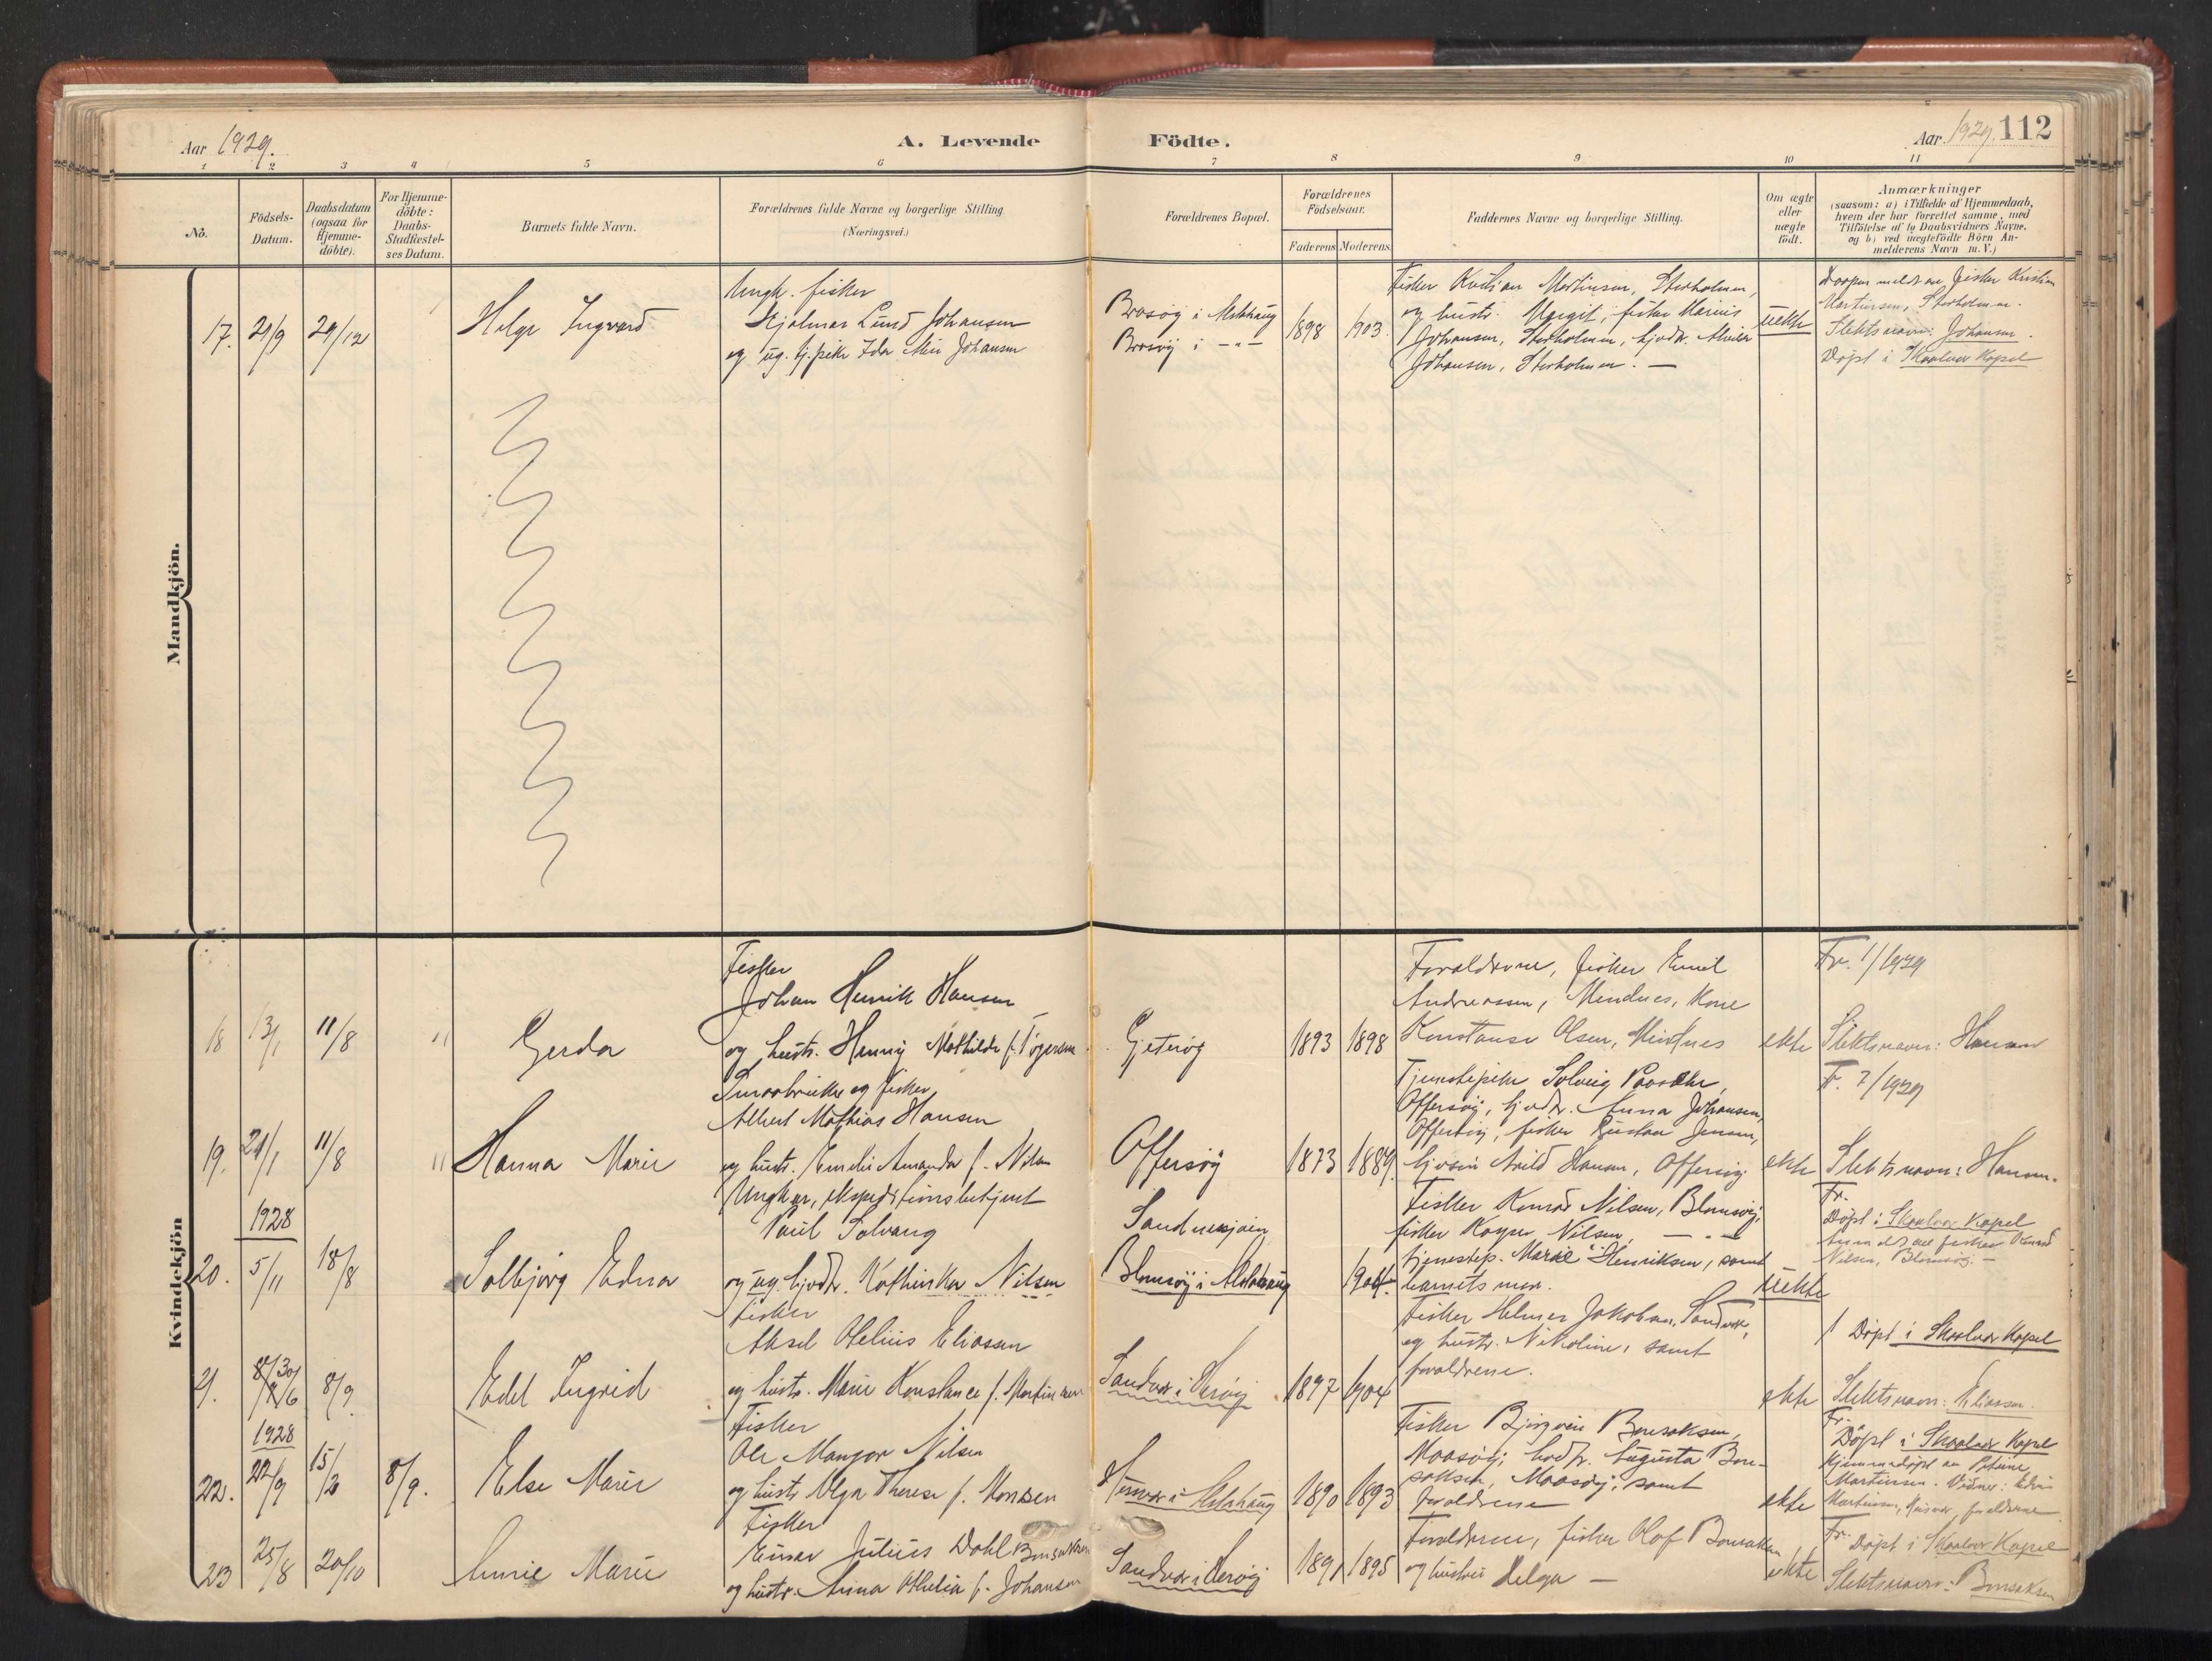 Aar 1929.
A. Levende
Födte.
Aar 1929. 112
1 2 3 4 5 6 7 8 9 10 11
No.
Födsels-
Datum.
Daabsdatum
(ogsaa for
Hjemme-
döbte).
For Hjemme-
döbte:
Daabs-
Stadfæstel-
ses Datum.
Barnets fulde Navn.
Forældrenes fulde Navne og borgerlige Stilling
(Næringsvei.)
Forældrenes Bopæl.
Forældrenes
Födselsaar.
Faderens
Moderens
Faddernes Navne og borgerlige Stilling.
Om ægte
eller
uægte
födt.
Anmærkninger
(saasom: a) i Tilfælde af Hjemmedaab,
hvem der har forrettet samme, med
Tilföielse af to Daabsvidners Navne.
og b) ved uægtefödte Börn An-
melderens Navn m. V.)
Mandkjön.
17. 21/9 29/12
Helge Ingvard
Ungk. fisker
Hjalmar Lund Johansen
og ug. tj.pike Ida Johansen
Brasöy i Alstahaug
Brasöy i -"-
1898
1903.
Fisker Kristian Martinsen, Storholmen,
og hustr. Margit, fisker Marius
Johansen, Storholmen, hjvdr. Alvilda
Johansen, Storholmen. —
uekte
Daapen meldt av fisker Kristian
Martinsen, Storholmen.
Slektsnavn: Johansen.
Döpt i Skaalvær Kapel
Kvindekjön
18 13/1 11/8 "
Gerda
Fisker
Johan Henrik Hansen
og hustr. Henny Mathilde f.
Gjeteröy
1893 1898
Foraldrene, fisker Emil
Andreassen, Mindnes, Kone
Konstanse Olsen, Mindnes
ekte
Fr. 1/1929
Slektsnavn: Hansen
19. 21/1 11/8 "
Hanna Marie
Smaabruker og fisker
Albert Mathias Hansen
og hustr. Emelie Amanda f. Nilsen
Offersöy
1873 1889.
Tjenestepike Solveig
Offersöy, hjvdr. Anna Johansen,
Offersöy, fisker Gustav Jensen,
Arild Hansen, Offersöy.
ekte
Fr. 7/1929
Slektsnavn: Hansen.
1928
20. 5/11 18/8
Solbjörg Edna
Ungkar, ekspeditionsbetjent
Paul Solvang
og ug. hjvdr. Kathinka Nilsen
Sandnessjöen
Blomsöy i Alstahaug
1904.
Fisker Konrad Nilsen, Blomsöy,
fisker Kaspar Nilsen, -"-
tjenestep. Marie Henriksen, samt
barnets mor.
uekte
Fr.
Döpt i Skaalvær Kapel
Anmeldt av fisker Konrad
Nilsen, Blomsöy. —
21. 30/6 8/9
Edel Ingrid
Fisker
Aksel Olelius Eliassen
og hustr. Marie Konstance f. Martinsen
Sandvær i Heröy
1897 1904
Fisker Helmer Jakobsen, Sandvær,
og hustr. Nikoline, samt
foraldrene.
ekte
Döpt i Skaalvær Kapel
Slektsnavn: Eliassen.
1928
22. 22/9 15/2 8/9.
Else Marie
Fisker
Ole Mangor Nilsen
og hustr. Olga Therese f. Monsen
Husvær i Alstahaug
1890 1893
Fisker Björgvin Bonsaksen,
Maasöy; hvdr. Augusta Bon-
saksen, Maasöy; samt
foraldrene
ekte
Fr.
Döpt i Skaalvær Kapel
Hjemmedöpt av Petrine
Martinsen. Vidner: Edvin
Martinsen, Husvær, foreldrene.
23 25/8 20/10
Annie Marie
Fisker
Einar Julius Dahl Bonsaksen
og hustr. Anna Othelia f. Johansen
Sandvær i Heröy
1891 1895
Foraldrene, fisker Olaf Bonsaksen
og hustru Helga —
ekte
Fr.
Döpt i Skaalvær Kapel
Slektsnavn: Bonsaksen